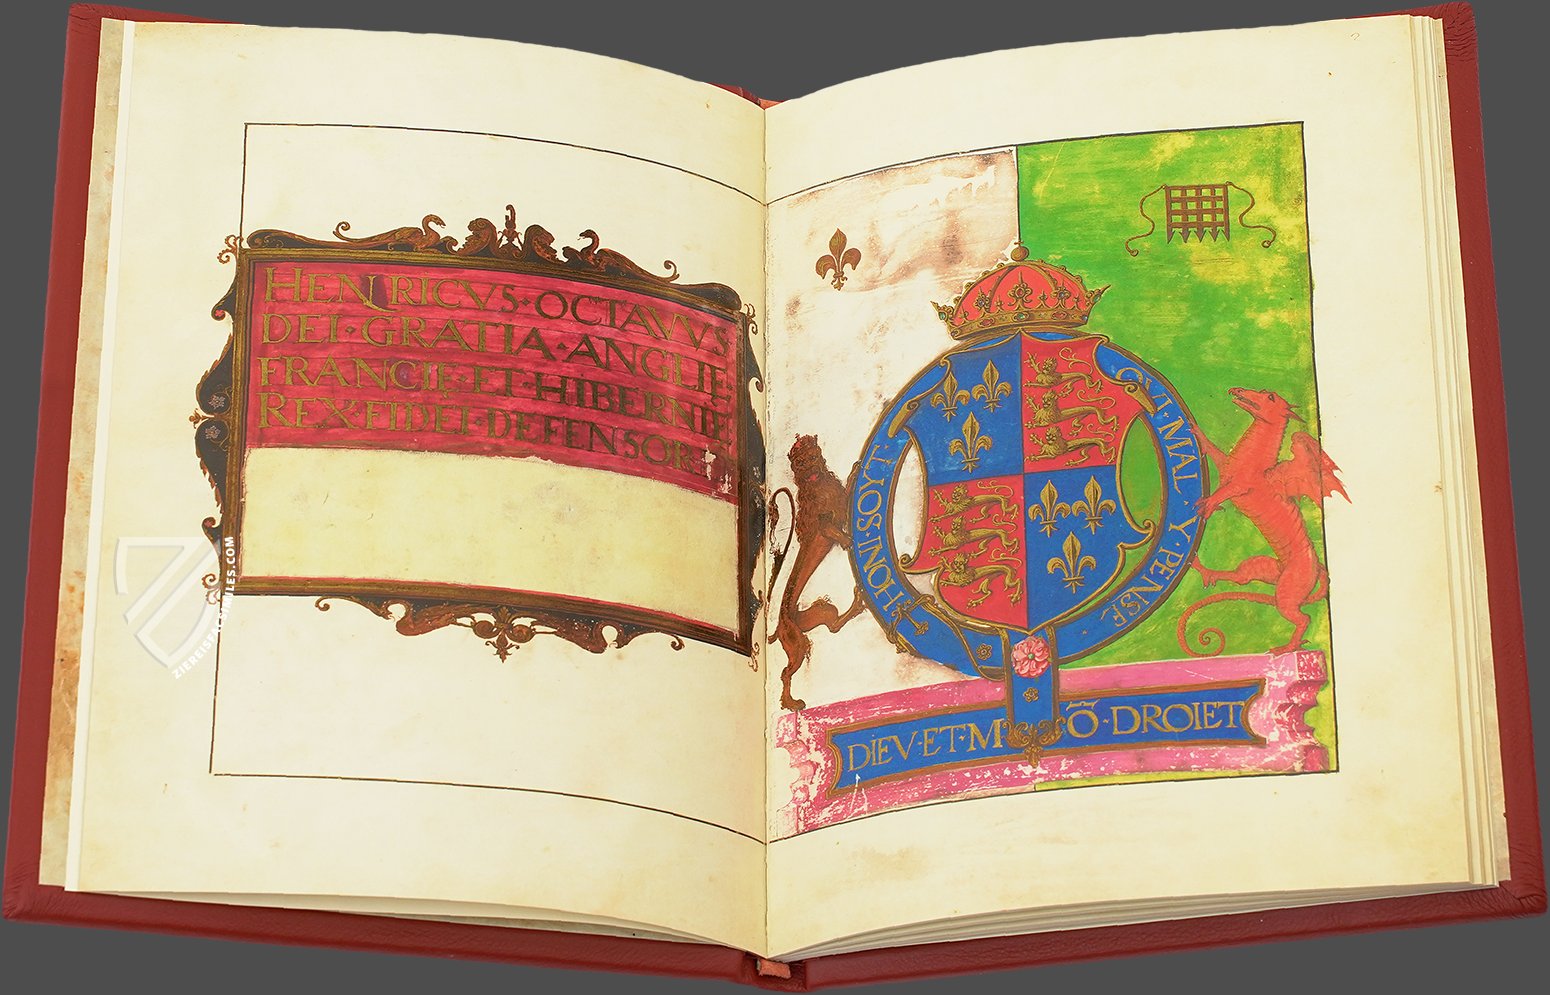 HENRICVS·OCTAVVS
DEI·GRATIA·ANGLIE
FRANCIE·ET·HIBERNIE
REX·FIDEI·DEFENSOR
HON
I·SOYT
QVI·MAL·Y·PENSE
DIEV·ET·M
Õ·DROIET
2
ZIEREIS FACSIMILES.COM